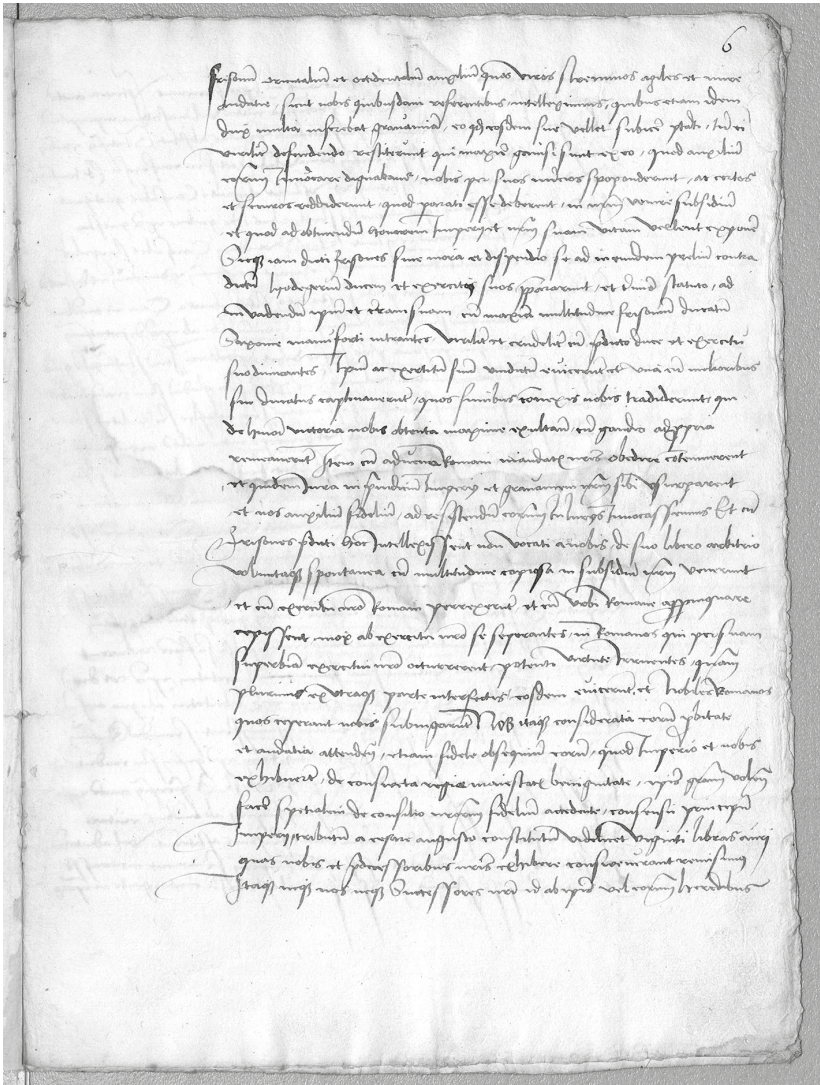 6
Frisonum orientalium et occidentalium auxilium quos viros strenuos agiles et mire
audatie, sicut nobis quibusdam referentibus intelleximus, quibus etiam idem
dux multa inferebat gravamina, eo qd eosdem sue vellet subicere ptati, tn ei
viriliter defendendo restiterunt qui maxime gavisi sunt ex eo, quod auxilium
eorum Invocare dignabamur, nobis per suos nuncios spoponderunt, ac certos
et securos reddiderunt, quod parati esse deberent, in nrm venire subsidium
et quod ad obtinendum honorem Imperij et nrm suam vitam vellent exponere
Sicque iam dicti Frisones sine mora et dispendio se ad ineundum prelium contra
dictum ducem et exercitus suos prepararunt, et termino statuto, ad
invadendum ipsum et terram suam, cum maxima multitudine frisonum ducatum
Saxonie manu forti intrantes, viriliter et crudeliter cum predicto duce et exercitu
suo dimicantes, Ipsum ac exercitum suum evicerunt et una cum melioribus
sui ducatus captivaverunt, quos funibus connexis nobis tradiderunt, qui
de huiusmodi victoria nobis obtenta maxime exultantes, cum gaudio ad propria
remeaverunt Item cum Romani mandatis nris obedire contemnerent
et quedam Iura in preiudicium Imperij et gravamen nrm sibi usurparent
et nos auxilium fidelium, ad resistendum eorum Invocassemus Et cum
Frisones predicti hoc Intellexissent non vocati a nobis, de suo libero arbitrio
voluntateque spontanea cum multitudine copiosa in subsidium nrm venerunt
et cum exercitu nro Romam perrexerunt et cum Urbi Romane appropinquare
cepissent, mox ab exercitu nro se seperantes, in Romanos qui per suam
superbiam exercitui nro occurrerent, potenti virtute Irruentes, quam
plurimis ex utraque parte interfectis eosdem evicerunt, et Nobiles Romanos
quos ceperant nobis subiugarunt Nos itaque considerata eorum pbitate
et audatia attendentes, etiam fidele obsequium eorum, quod Imperio et nobis
exhibuerunt, de consueta regie maiestatis benignitate, ipsis gratiam volentes
facere spetialem de consilio nrorum fidelium accedente, consensu principum
Imperij, tributum a cesare augusto constitutum videlicet viginti libras auri
quas nobis et predecessoribus nris exhibere consueverant remisimus
Itaque neque nos neque Successores nri id ab ipsis vel eorum heredibus